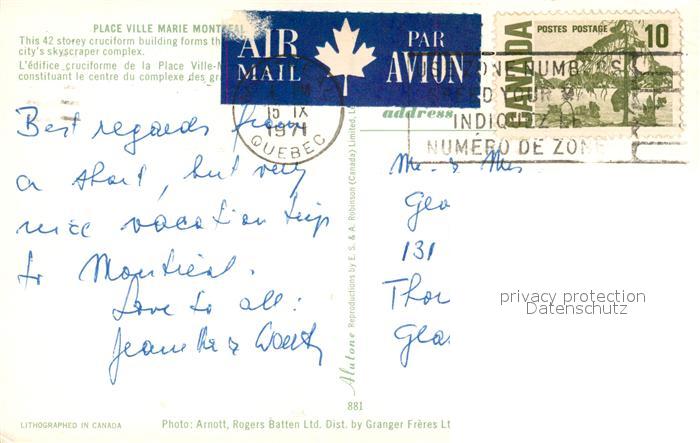 PLACE VILLE MARIE MONTREAL
This 42 storey cruciform building forms th
city's skyscraper complex.
L'édifice cruciforme de la Place Ville-M
constituant le centre du complexe des gra
AIR MAIL
PAR AVION
CANADA
POSTES POSTAGE
10
15 IX
1971
QUEBEC
ZONE NUMBERS
YOUR M
INDIQUEZ LE
NUMÉRO DE ZONE
address
Best regards from
a short, but very
nice vacation trip
to Montreal.
Love to all:
Mr. & Mrs
Geo
131
Thor
Glas
privacy protection
Datenschutz
Alutone Reproductions by E. S. & A. Robinson (Canada) Limited, Le
881
LITHOGRAPHED IN CANADA
Photo: Arnott, Rogers Batten Ltd. Dist. by Granger Frères Lt